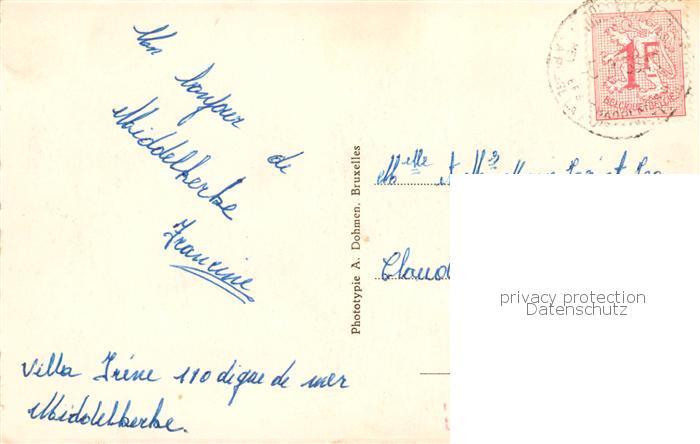 Un bonjour de
Middelkerke
Francine
Villa Irène 110 digue de mer
Middelkerke.
Phototypie A. Dohmen, Bruxelles
1F
BELGIE BELGIQUE
Melle et Mr
Claud
privacy protection
Datenschutz